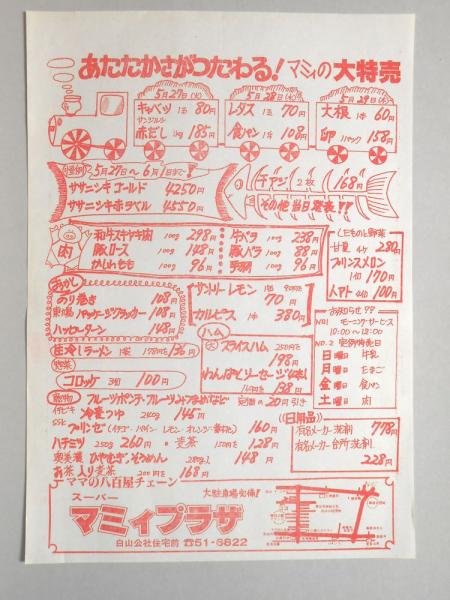 あたたかさがつたわる! マミィの大特売
5月27日(火)
キャベツ 1コ 80円
サンジルシ
赤だし 1kg 185円
5月28日(水)
レタス 1コ 70円
食パン 1斤 108円
5月29日(木)
大根 1本 60円
卵 1パック 158円
5月27日〜6月1日まで!
ササニシキゴールド 4250円
ササニシキ赤ラベル 4550円
干アジ 2枚 168円
その他当日発表!!
肉
和牛スキヤキ肉 100g 298円
豚ロース 100g 148円
かしわもも 100g 96円
牛バラ 100g 238円
豚バラ 100g 88円
手羽 100g 96円
くだものと野菜
甘夏 4ケ 280円
プリンスメロン
1コ 170円
トマト 4コ 100円
おかし
のり巻き 108円
パッケージクラッカー 108円
ハッピーターン 148円
サントリーレモン
70円
カルピス 1本 380円
生冷しラーメン 136円
惣菜
コロッケ 3コ 100円
ハム
スライスハム 250円を
198円
わんぱくソーセージ
138円
お知らせ
NO1 モーニングサービス
10:00〜12:00
NO.2 定例特売日
日曜日 牛乳
月曜日 たまご
金曜日 食パン
土曜日 肉
フルーツポンチ・フルーツみつまめなど 定価の20円引き
冷麦つゆ 240g 145円
プリンゼ(イチゴ・パイン・レモン・オレンジ・青りんご) 160円
ハチミツ 250g 260円・麦茶 150円を128円
ひやむぎ・そうめん 148円
お茶入り麦茶 200円を168円
日用品
有名メーカー洗剤 778円
有名メーカー台所洗剤
228円
ママの八百屋チェーン
スーパー
マミィプラザ
大駐車場完備!
白山公社住宅前 ☎51-6822